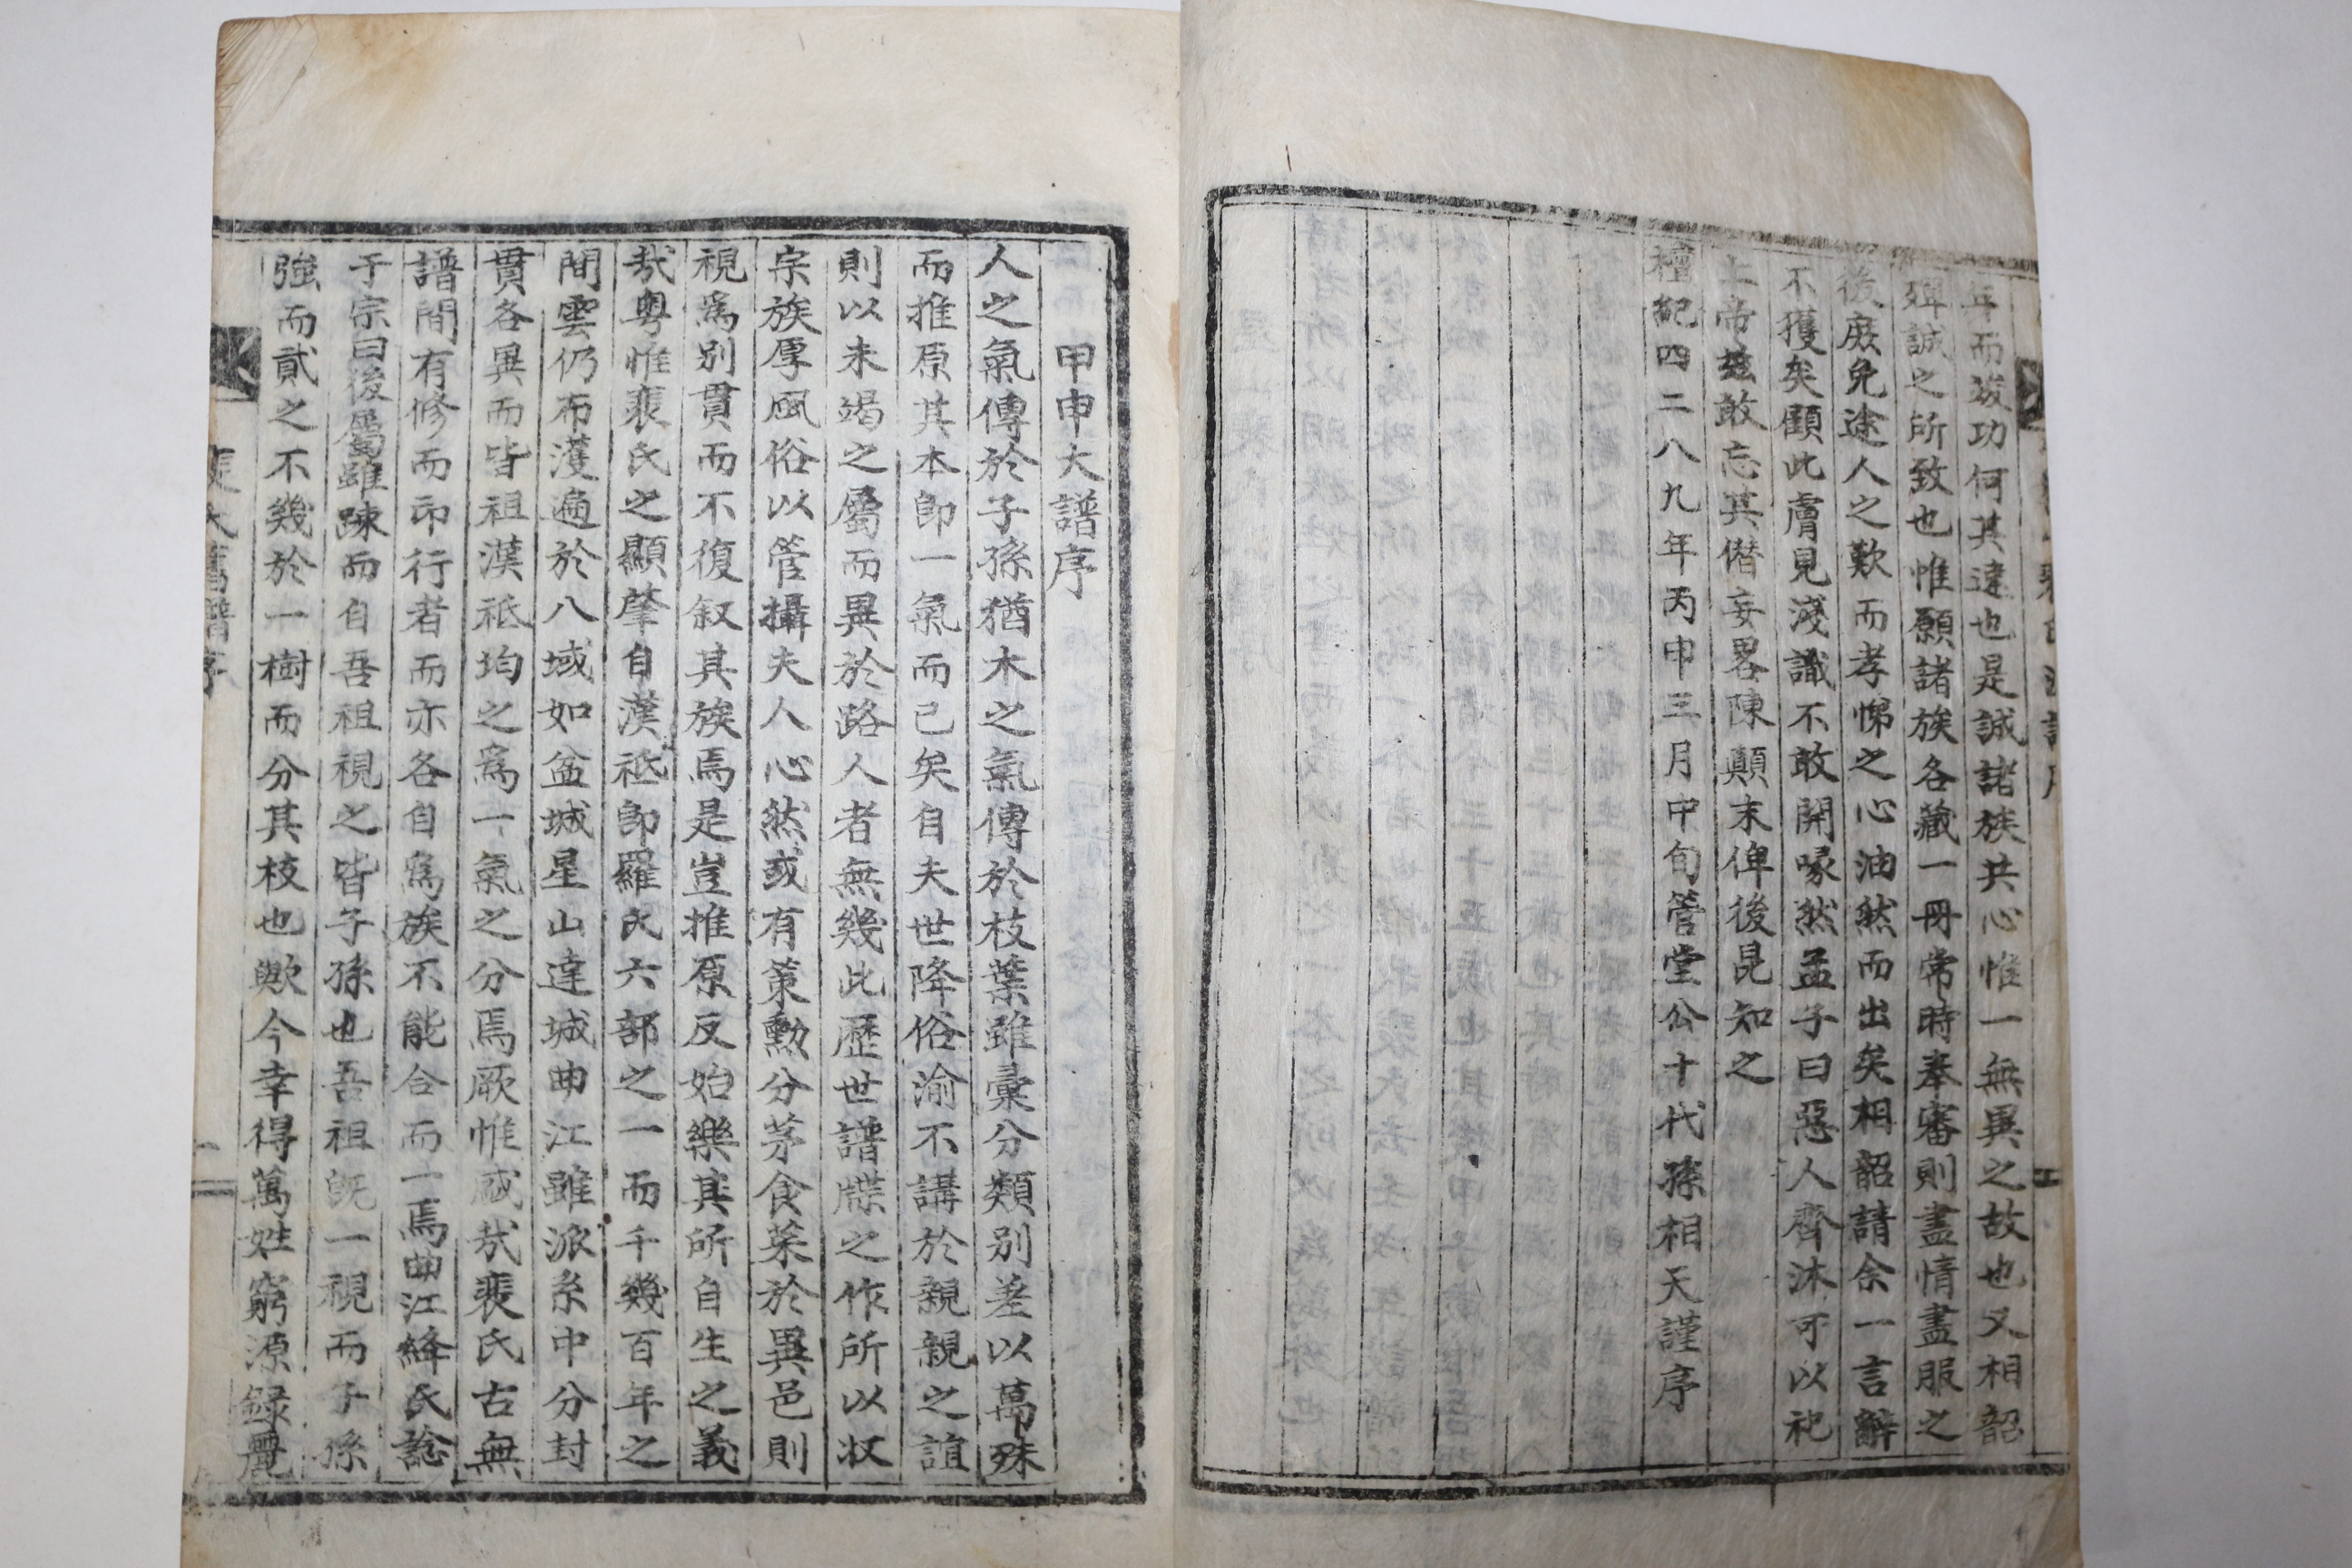 年而竣功何其遠也是誠諸族共心惟一無異之故也又相韶
殫誠之所致也惟願諸族各藏一冊常時奉審則盡情盡服之
後庶免途人之歎而孝悌之心油然而出矣相韶請余一言辭
不獲矣顧此膚見淺識不敢開喙然孟子曰惡人齊沐可以祀
上帝玆敢忘其僭妄畧陳顛末俾後昆知之
檀紀四二八九年丙申三月中旬管堂公十代孫相天謹序
甲申大譜序
人之氣傳於子孫猶木之氣傳於枝葉雖彙分類別差以萬殊
而推原其本卽一氣而已矣自夫世降俗渝不講於親親之誼
則以未竭之屬而異於路人者無幾此歷世譜牒之作所以收
宗族厚風俗以管攝夫人心然或有策勳分茅食菜於異邑則
視爲別貫而不復叙其族焉是豈推原反始樂其所自生之義
哉粤惟裵氏之顯肇自漢祗卽羅氏六部之一而千幾百年之
間雲仍布濩遍於八域如盆城星山達城曲江雖派系中分封
貫各異而皆祖漢祗均之爲一氣之分焉厥惟盛哉裵氏古無
譜間有修而印行者而亦各自爲族不能合而一焉曲江絳氏諗
于宗曰後屬雖踈而自吾祖視之皆子孫也吾祖旣一視而子孫
強而貳之不幾於一樹而分其枝也歟今幸得萬姓窮源錄
大舊譜序